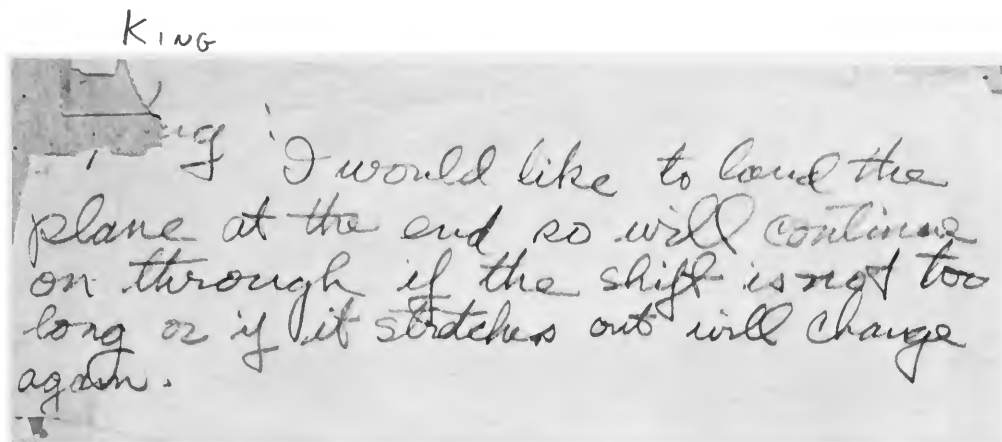 KING
I would like to land the
plane at the end so will continue
on through if the shift is not too
long or if it stretches out will change
again.